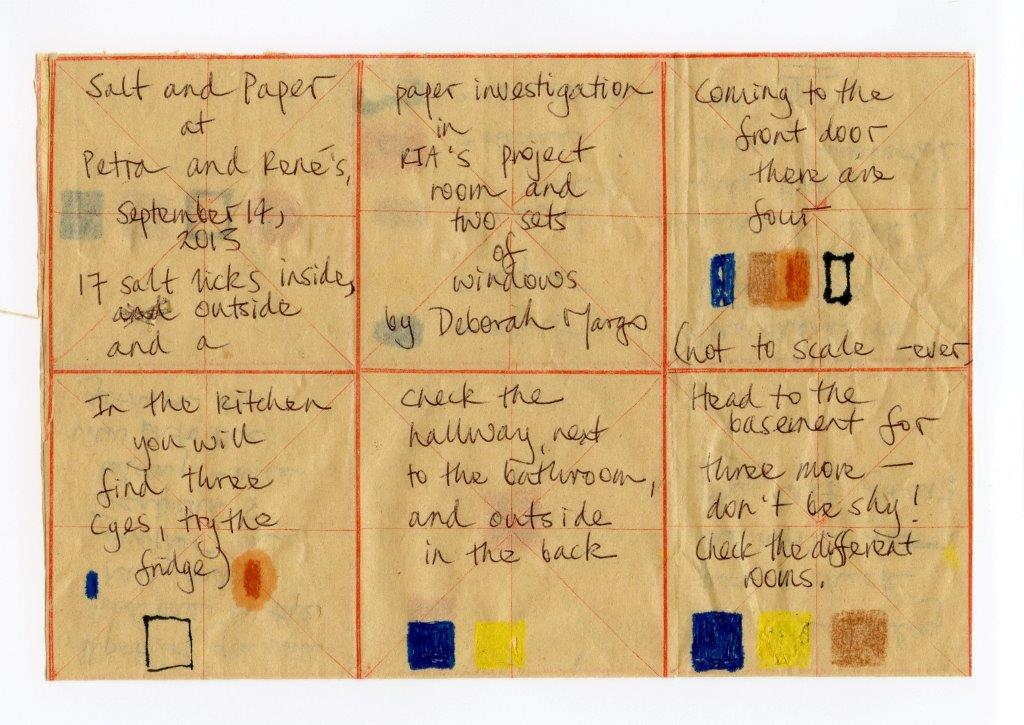 Salt and Paper
at
Petra and René's,
September 14,
2013
17 salt licks inside,
outside
and a
paper investigation
in
RIA's project
room and
two sets
of
windows
by Deborah Margo
Coming to the
front door
there are
four
(not to scale - ever)
In the kitchen
you will
find three
(yes, try the
fridge)
check the
hallway, next
to the bathroom,
and outside
in the back
Head to the
basement for
three more —
don't be shy!
Check the different
rooms.